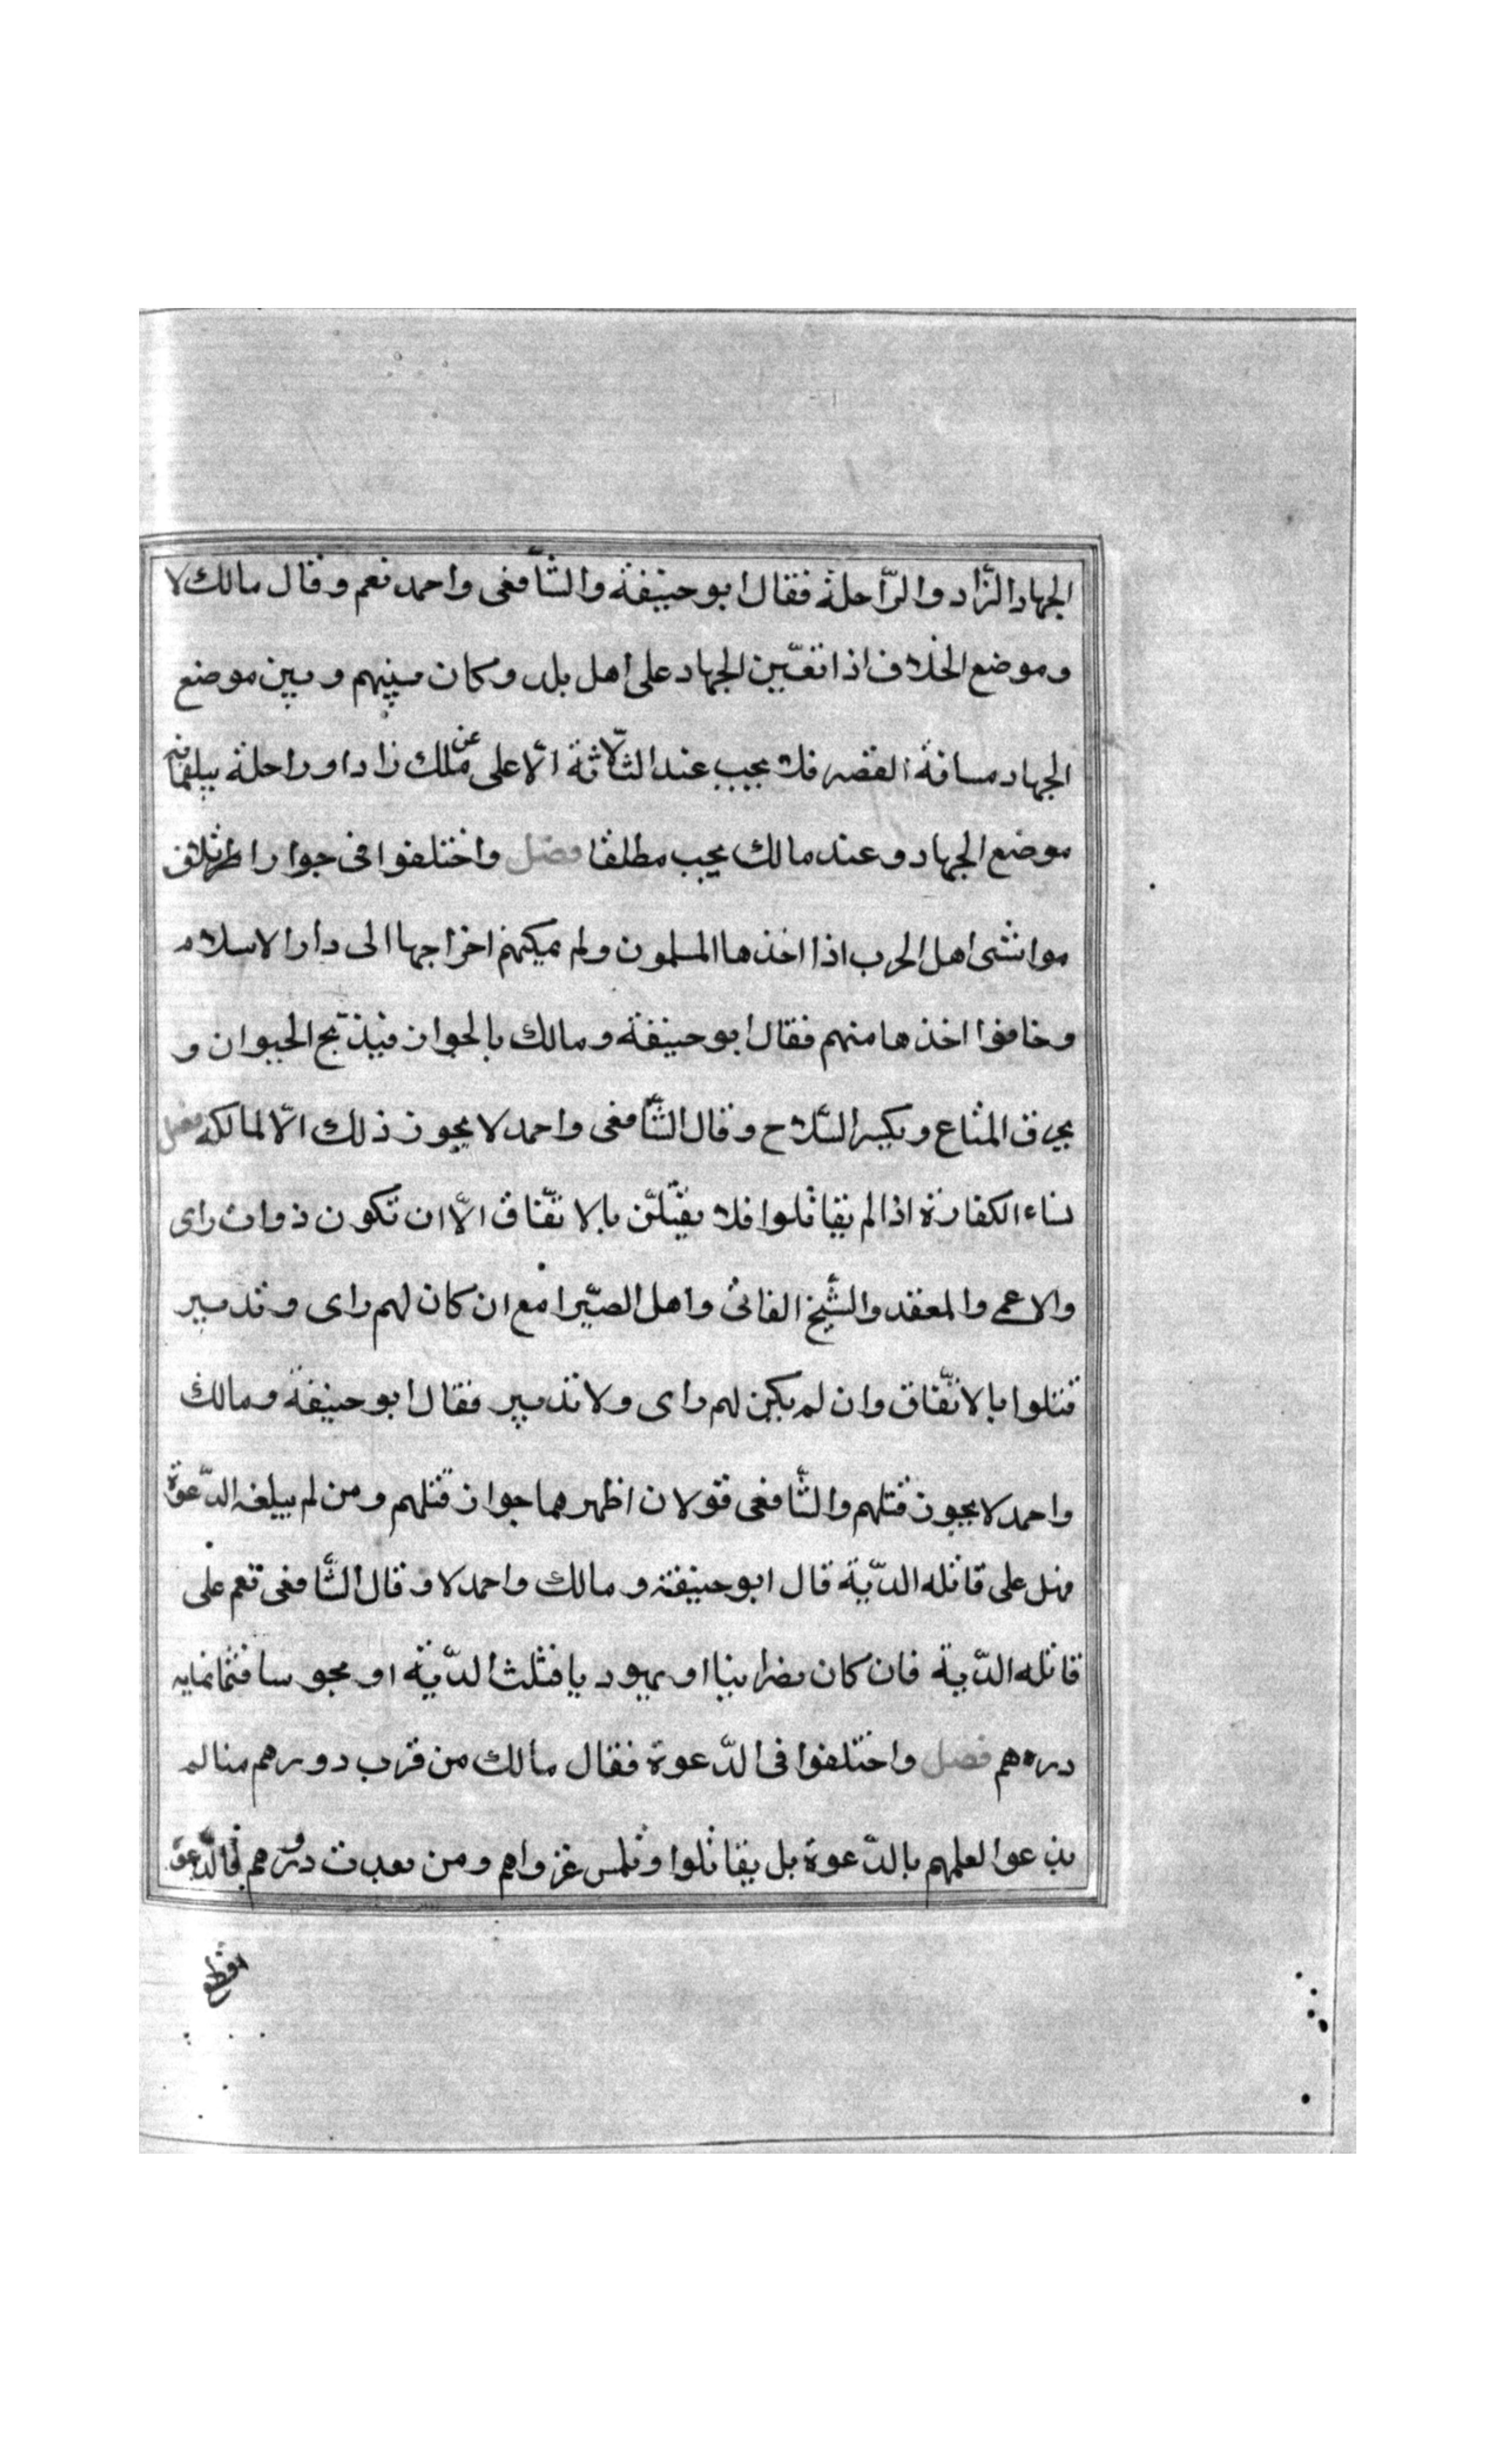 الجهاد الزّاد والرّاحلة فقال ابو حنيفة والشّافعى واحمد نعم وقال مالك لا
وموضع الخلاف اذا تعّين الجهاد على اهل بلد وكان بينهم وبين موضع
الجهاد مسافة القصر فلا يجب عند الثلّاثة الّا على من ملك زادا وراحلة يبلغانه
موضع الجهاد وعند مالك يجب مطلقا فصل واختلفوا فى جواز
مواشى اهل الحرب اذا اخذها المسلمون ولم يمكنهم اخراجها الى دار الاسلام
وخافوا اخذها منهم فقال ابو حنيفة ومالك بالجواز فيذبّح الحيوان و
يحرق المتاع ويكسر السّلاح وقال الشّافعى واحمد لا يجوز ذلك الّا لمالكه فصل
نساء الكفارة اذا لم يقاتلوا فلا يقتلّن بالاتّفاق الّا ان تكون ذوات راى
والاعمى والمعقد والشّيخ الفانى واهل الصّيرامع ان كان لهم راى وتدبير
قتلوا بالاتّفاق وان لم يكن لهم راى ولا تدبير فقال ابو حنيفة ومالك
واحمد لا يجوز قتلهم والشّافعى قولان اظهرهما جواز قتلهم ومن لم يبلغه الدّعوة
فهل على قاتله الدّية قال ابو حنيفة ومالك واحمد لا وقال الشّافعى نعم على
قاتله الدّية فان كان نصرانيا او يهود يا فثلث الدّية او مجوسا فثمانمايه
درهم فصل واختلفوا فى الدّعوة فقال مالك من قرب دورهم منا لم
يدعوا لعلمهم بالدّعوة بل يقاتلوا وتلمس غزواهم ومن بعدت دورهم فالدّعوة
اقطع